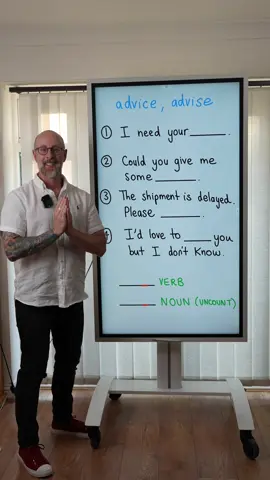 advice, advise
① I need your ______.
② Could you give me
some ______.
③ The shipment is delayed.
Please ______.
④ I'd love to ______ you
but I don't know.
______ VERB
______ NOUN (UNCOUNT)